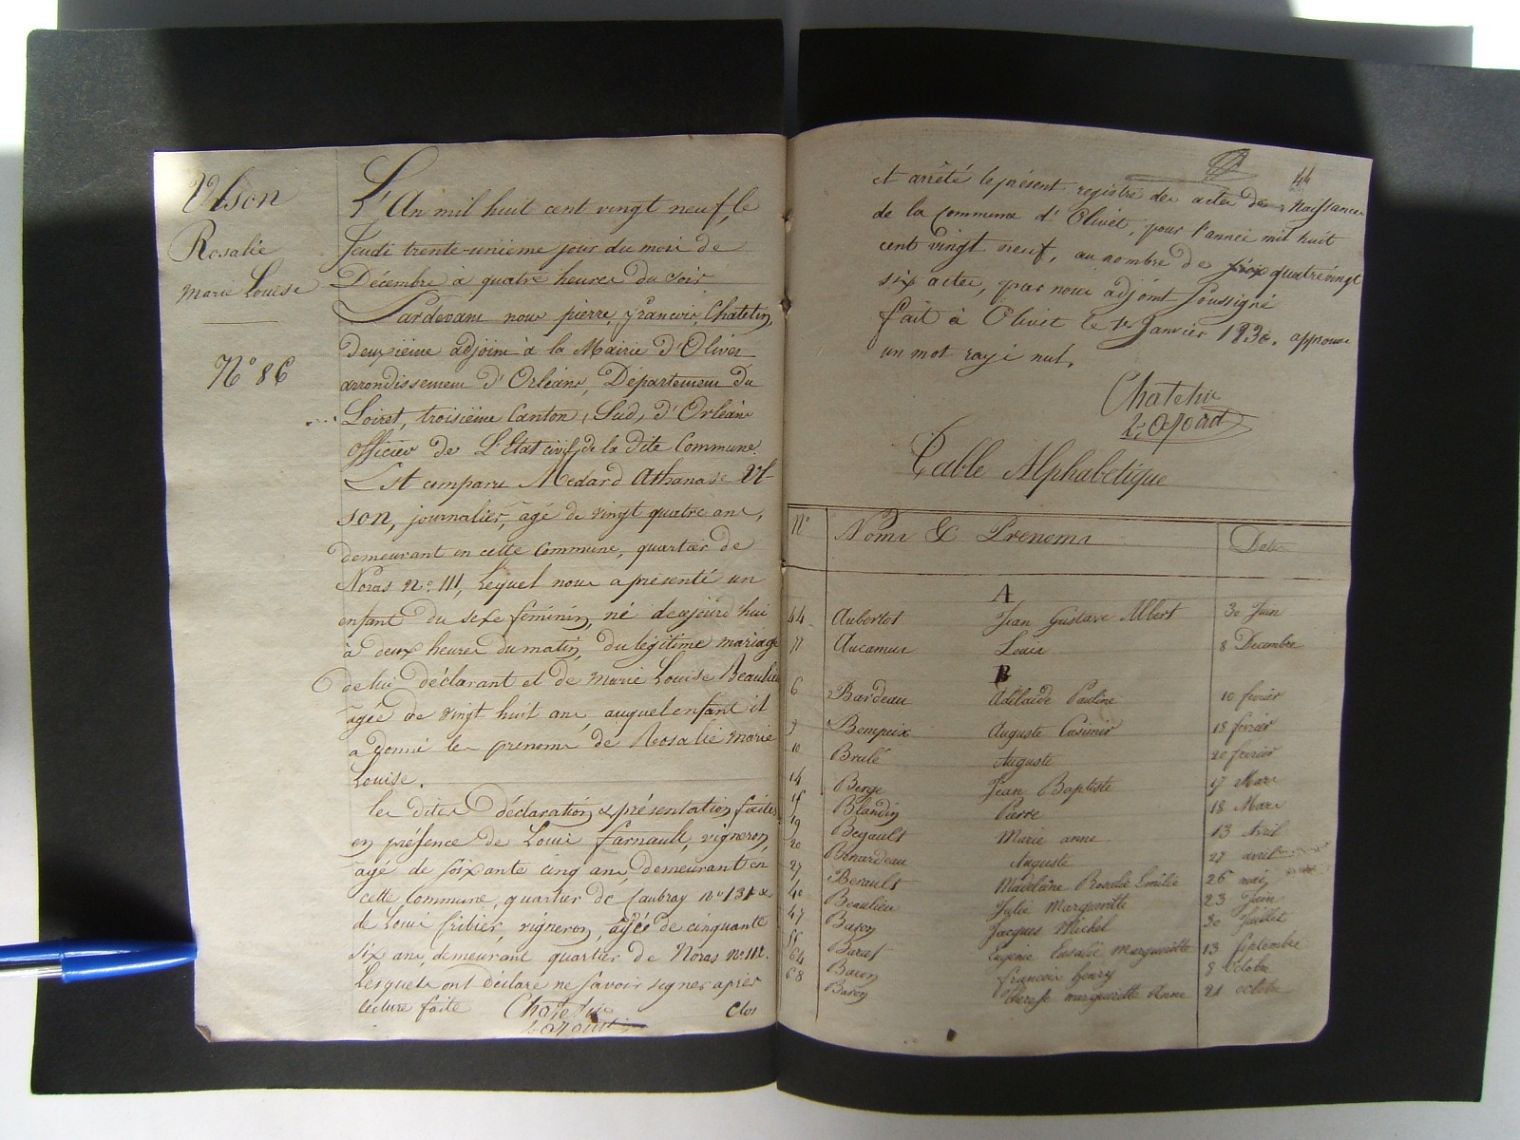 Ulson
Rosalie
Marie Louise
N° 86
L'An mil huit cent vingt neuf, le
Jeudi trente-unième jour du mois de
Décembre à quatre heures du soir
Pardevant nous pierre, françois, Chatelin,
deuxième adjoint à la Mairie d'Olivet
arrondissement d'Orléans, Département du
Loiret, troisième Canton, Sud, d'Orléans
officier de L'Etat civil de la dite Commune.
Est comparu Médard Athanase Ul-
son, journalier, agé de vingt quatre ans,
demeurant en cette Commune, quartier de
Noras n° 111, Lequel nous a présenté un
enfant du sexe féminin, né de cejourd'hui
à deux heures du matin, du légitime mariage
de lui déclarant et de Marie Louise Beaulieu
agée de vingt huit ans auquel enfant il
a donné les prenoms de Rosalie Marie
Louise.
les dites Déclaration & présentation faites
en présence de Louis farnault, vigneron,
agé de soixante cinq ans, demeurant en
cette Commune, quartier de Caubray n° 131 &
de Louis fribier, vigneron, agé de cinquante
six ans, demeurant quartier de Noras n° 112.
Lesquels ont déclaré ne savoir signer après
lecture faite Chatelin Clos
2e adjoint
44
et arrêté le présent registre des actes de Naissances
de la Commune d'Olivet, pour l'année mil huit
cent vingt neuf, au nombre de quatre vingt
six actes, par nous adjoint soussigné
fait à Olivet le 1er Janvier 1830. approuvé
un mot rayé nul.
Chatelin
2e adjoint
Table Alphabétique
N° Noms & Prenoms Dates
A
44 Aubertot Jean Gustave Albert 30 Juin
77 Aucamus Louis 8 Décembre
B
6 Bardeau Adélaïde Pauline 10 fevrier
9 Bompeix Auguste Casimir 18 fevrier
10 Brulé Auguste 20 fevrier
14 Berge Jean Baptiste 17 Mars
15 Blandin Pierre 18 Mars
19 Begault Marie anne 13 Avril
20 Benardeau Auguste 27 avril
27 Berault Madelaine Rosalie Emilie 26 mai
40 Beaulieu Julie Marguerite 23 Juin
47 Baron Jacques Michel 30 Juillet
55 Baret Eugénie Eusalie Marguerite 13 septembre
64 Baron francois henry 8 Octobre
68 Baron Therese marguerite Anne 21 octobre